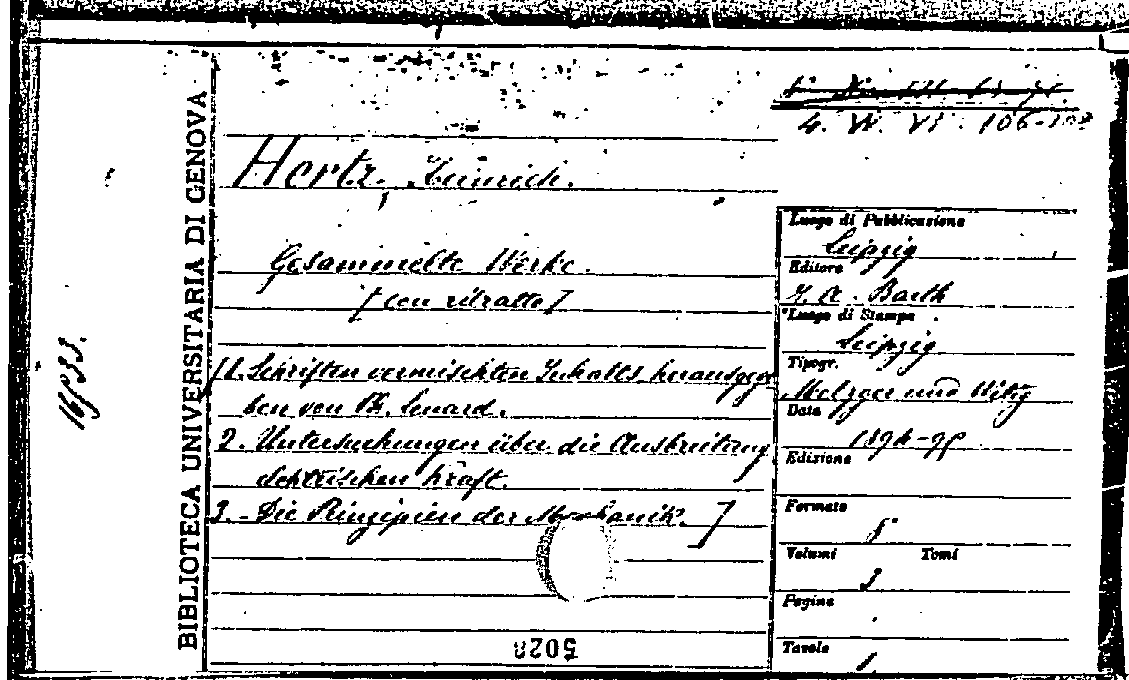 4. W. VI. 106-108
Hertz, Heinrich.
Gesammelte Werke.
[con ritratto]
[1. Schriften vermischten Inhalts herausgege
ben von Ph. Lenard.
2. Untersuchungen über die Ausbreitung
elektrischen Kraft.
3. - Die Prinzipien der Mechanik. ]
BIBLIOTECA UNIVERSITARIA DI GENOVA
Luogo di Pubblicazione
Leipzig
Editore
J. A. Barth
Luogo di Stampa
Leipzig
Tipogr.
Metzger und Wittig
Data
1894-95
Edizione
Formato
8°
Volumi Tomi
3
Pagine
Tavole
1
5028